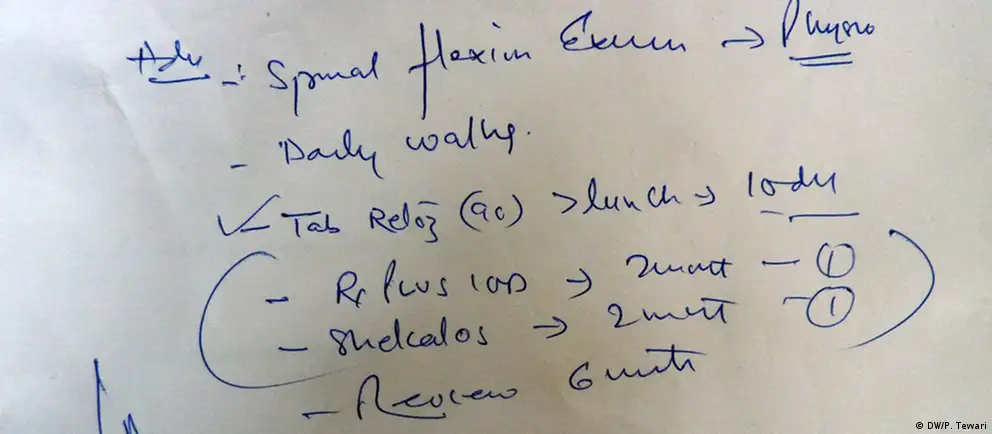 Adv -: Spinal flexion Exercise → Physio
- Daily walks.
✓ Tab (90) > lunch → 10 day
- → 2 mont - ①
- Shelcalos → 2 mnt - ①
- Review 6 mnts
© DW/P. Tewari